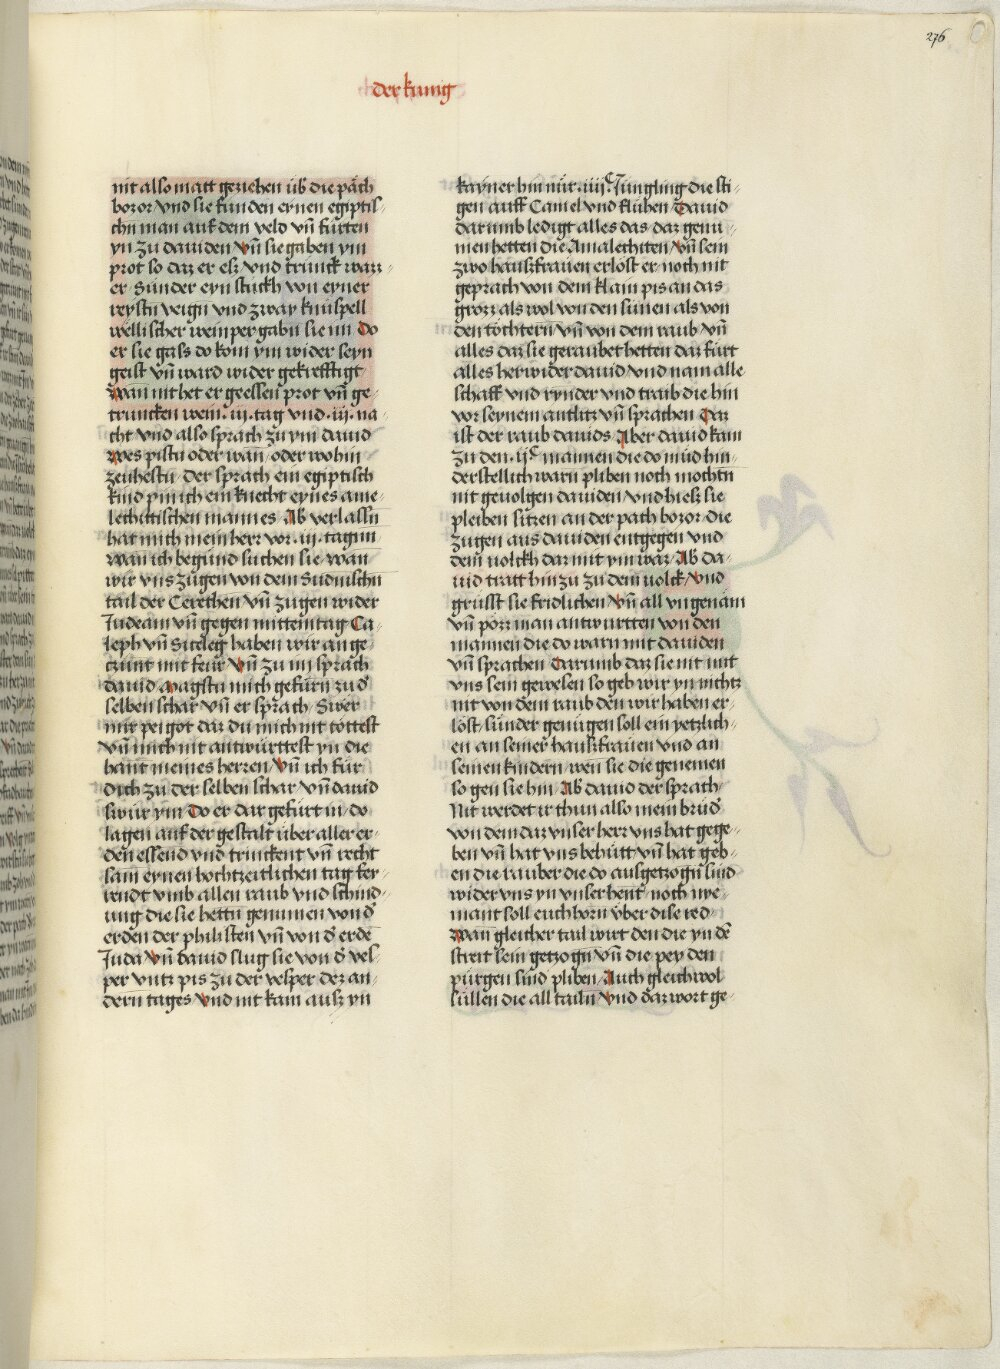 276
der kunig
nit also matt geziehen üb̾ die päch
bozor vnd sie funden eynen egiptis⸗
chn man auf dem veld vn̄ fürten
yn zu dauiden Vn̄ sie gaben ym
prot so daz er ess vnd trunck wazz⸗
er Sünder eyn stückh von eyner
reystn veign vnd zway knüspell
wellischer weinper gabn sie im Do
er sie gass do kom ym wider seyn
geist vn̄ ward wider gekrefftigt
Wan nit het er geessen prot vn̄ ge⸗
truncken wein .iij. tag vnd .iij. na⸗
cht vnd also sprach zu ym dauid
Wes pistu oder wan̄ oder wohin
zeuhestu der sprach ein egiptisch
kind pin ich ein knecht eynes ame⸗
lechittischen mannes Ab verlassn
hat mich mein herr vor .iij. tagnn
wan ich begund suchen sie wan
wir vns zugen von dem Sudnischn
tail der Cerethen vn̄ zugen wider
Iudeam vn̄ gegen mittemtag Ca⸗
leph vn̄ Siceleg haben wir an ge⸗
tzünt mit feur Vn̄ zu im sprach
dauid Magstu mich gefürn zu d̾
selben schar vn̄ er sprach Swer
mir pei got daz du mich nit töttest
vn̄ mich nit antwürttest yn die
hant meines herren Vn̄ ich für
dich zu der selben schar vn̄ dauid
swur ym Do er dar gefürt in do
lagen auf der gestalt über aller er⸗
den essend vnd trinckent vn̄ recht
sam eynen hochtzeitlichen tag fer⸗
rendt vmb allen raub vnd schind⸗
ung die sie hettn genumen von d̾
erden der philisten vn̄ von d̾ erde
Iuda Vn̄ dauid slug sie von d̾ ves⸗
per vntz pis zu der vesper dez an⸗
dern tages Vnd nit kam ausz yn
kayner hin nür .iiijC Iüngling die sti⸗
gen auff Camel vnd fluhen Dauid
darumb ledigt alles das daz genu⸗
men hetten die Amalechiten Vn̄ sein
zwo hauszfrauen erlost er noch nit
geprach von dem klain pis an das
grozz als wol von den sünen als von
den töchtern vn̄ von dem raub vn̄
alles daz sie geraubet hetten daz fürt
alles herwider dauid vnd nam alle
schaff vnd rynder vnd traib die hin
vor seynem antlitz vn̄ sprachen Daz
ist der raub dauids Aber dauid kam
zu den .ijC mannen die do müd hin⸗
derstellich warn pliben noch mochtn
nit geuolgen dauiden vnd hiesz sie
pleiben sitzen an der päch bozor die
zugen aus dauiden entgegen vnd
dem uolckh daz mit ym waz Ab da⸗
uid tratt hinzu zu dem uolck Vnd
grusst sie fridlichen Vn̄ all vngenäm
vn̄ pözz man antwurtten von den
mannen die do warn mit dauiden
vn̄ sprachen Darumb daz sie nit mit
vns sein gewesen so geb wir yn nichtz
nit von dem raub den wir haben er⸗
löst sünder genügen soll ein yetzlich⸗
en an seiner hauszfrauen vnd an
seinen kindern wen sie die genemen
so gen sie hin Ab dauid der sprach
Nit werdet ir thun also mein brüd̾
von dem daz vnser herr vns hat gege⸗
ben vn̄ hat vns behütt vn̄ hat geb⸗
en die rauber die do ausgetzogn̄ sind
wider vns yn vnser hent noch nye⸗
mant soll euch hörn über dise red
Wan gleicher tail wirt den die yn dē
streit sein getzogn̄ vn̄ die pey den
pürgen sind pliben Auch gleich wol
süllen die all tailn Vnd daz wort ge⸗